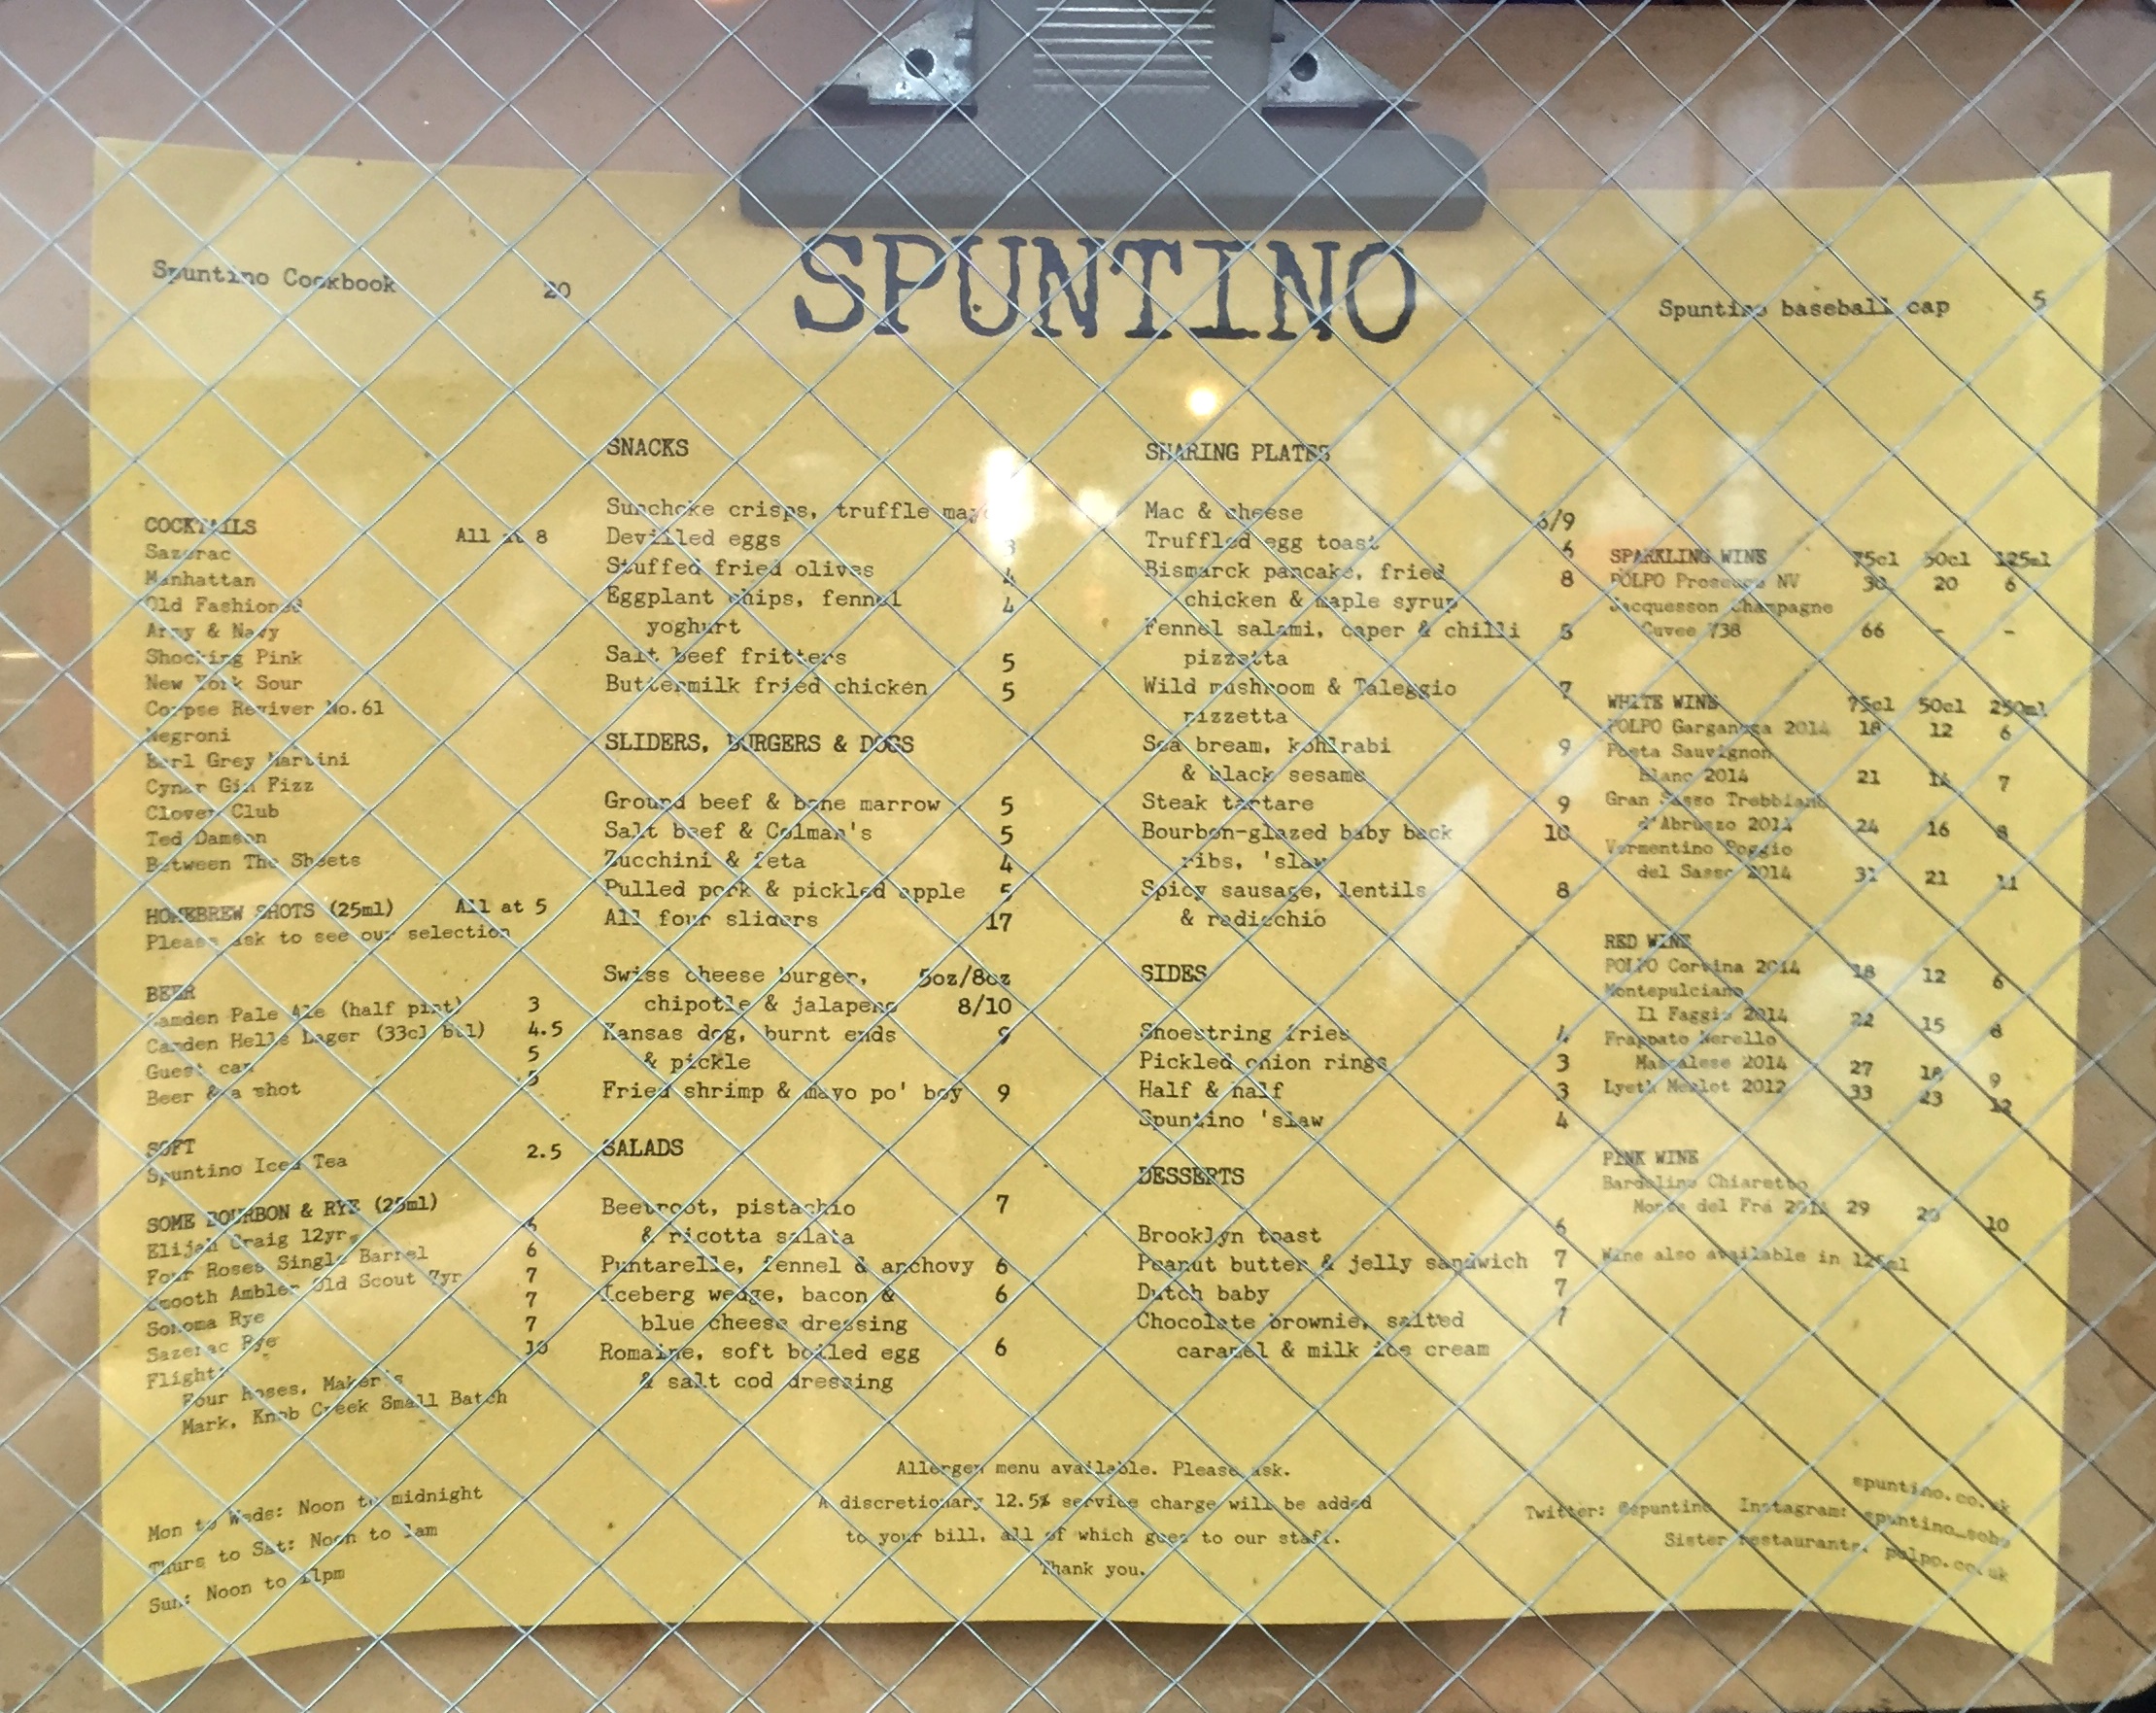 SPUNTINO
Spuntino Cookbook 20
Spuntino baseball cap 5
COCKTAILS All at 8
Sazerac
Manhattan
Old Fashioned
Army & Navy
Shocking Pink
New York Sour
Corpse Reviver No.61
Negroni
Earl Grey Martini
Cynar Gin Fizz
Clover Club
Ted Damson
Between The Sheets
HOMEBREW SHOTS (25ml) All at 5
Please ask to see our selection
BEER
Camden Pale Ale (half pint) 3
Camden Hells Lager (33cl btl) 4.5
Guest can 5
Beer & a shot 5
SOFT
Spuntino Iced Tea 2.5
SOME BOURBON & RYE (25ml)
Elijah Craig 12yr 5
Four Roses Single Barrel 6
Smooth Ambler Old Scout 7yr 7
Sonoma Rye 7
Sazerac Rye 7
Flight: 10
Four Roses, Maker's
Mark, Knob Creek Small Batch
Mon to Weds: Noon to midnight
Thurs to Sat: Noon to 1am
Sun: Noon to 11pm
SNACKS
Sunchoke crisps, truffle mayo
Devilled eggs 3
Stuffed fried olives 4
Eggplant chips, fennel 4
yoghurt
Salt beef fritters 5
Buttermilk fried chicken 5
SLIDERS, BURGERS & DOGS
Ground beef & bone marrow 5
Salt beef & Colman's 5
Zucchini & feta 4
Pulled pork & pickled apple 5
All four sliders 17
Swiss cheese burger, 5oz/8oz
chipotle & jalapeno 8/10
Kansas dog, burnt ends 9
& pickle
Fried shrimp & mayo po' boy 9
SALADS
Beetroot, pistachio 7
& ricotta salata
Puntarelle, fennel & anchovy 6
Iceberg wedge, bacon & 6
blue cheese dressing
Romaine, soft boiled egg 6
& salt cod dressing
SHARING PLATES
Mac & cheese 6/9
Truffled egg toast 6
Bismarck pancake, fried 8
chicken & maple syrup
Fennel salami, caper & chilli 5
pizzetta
Wild mushroom & Taleggio 7
pizzetta
Sea bream, kohlrabi 9
& black sesame
Steak tartare 9
Bourbon-glazed baby back 10
ribs, 'slaw
Spicy sausage, lentils 8
& radicchio
SIDES
Shoestring fries 4
Pickled onion rings 3
Half & half 3
Spuntino 'slaw 4
DESSERTS
Brooklyn toast 6
Peanut butter & jelly sandwich 7
Dutch baby 7
Chocolate brownie, salted 7
caramel & milk ice cream
SPARKLING WINE 75cl 50cl 125ml
POLPO Prosecco NV 30 20 6
Jacquesson Champagne
Cuvee 738 66 - -
WHITE WINE 75cl 50cl 250ml
POLPO Garganega 2014 18 12 6
Poeta Sauvignon
Blanc 2014 21 14 7
Gran Sasso Trebbiano
d'Abruzzo 2014 24 16 8
Vermentino Poggio
del Sasso 2014 31 21 11
RED WINE
POLPO Corvina 2014 18 12 6
Montepulciano
Il Faggio 2014 22 15 8
Frappato Nerello
Mascalese 2014 27 18 9
Lyeth Merlot 2012 33 23 12
PINK WINE
Bardolino Chiaretto
Monte del Frá 2014 29 20 10
Wine also available in 125ml
Allergen menu available. Please ask.
A discretionary 12.5% service charge will be added
to your bill, all of which goes to our staff.
Thank you.
spuntino.co.uk
Twitter: @spuntino Instagram: spuntino_soho
Sister restaurants: polpo.co.uk